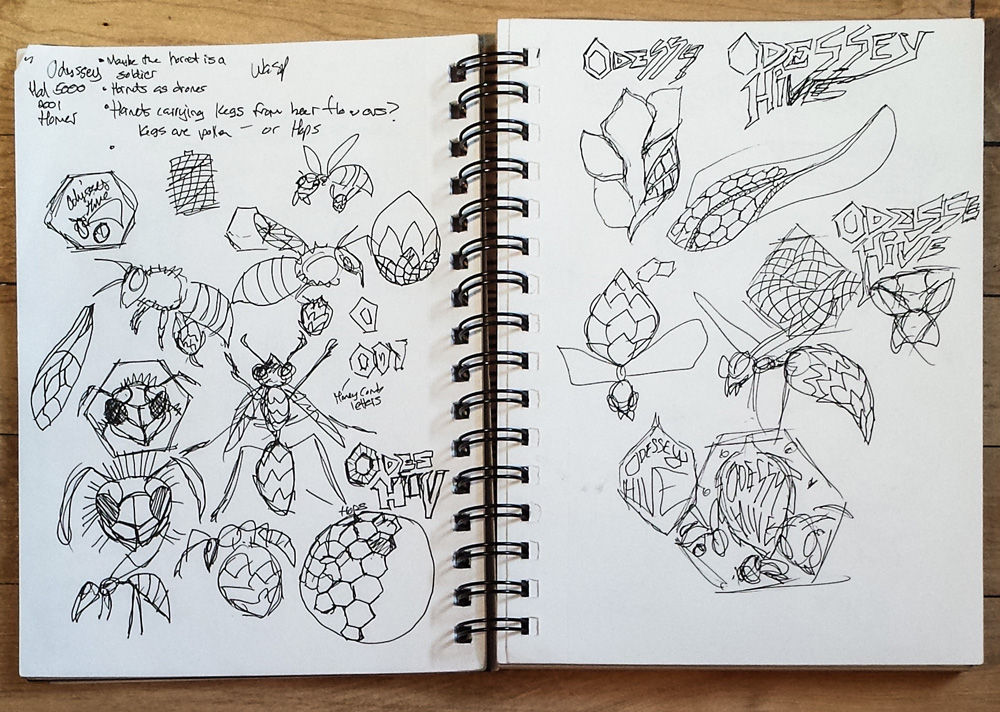 Odyssey
Hal 5000
2001
Homer
• Maybe the hornet is a
soldier
• Hornets as drones
• Hornets carrying kegs from beer flowers?
Kegs are pollen — or Hops
Wasp
Odyssey
Hive
Honey comb
letters
ODES
HIV
Hops
ODESSY
ODESSEY
HIVE
ODESSE
HIVE
ODESSEY
HIVE
ODESSY
HIVE